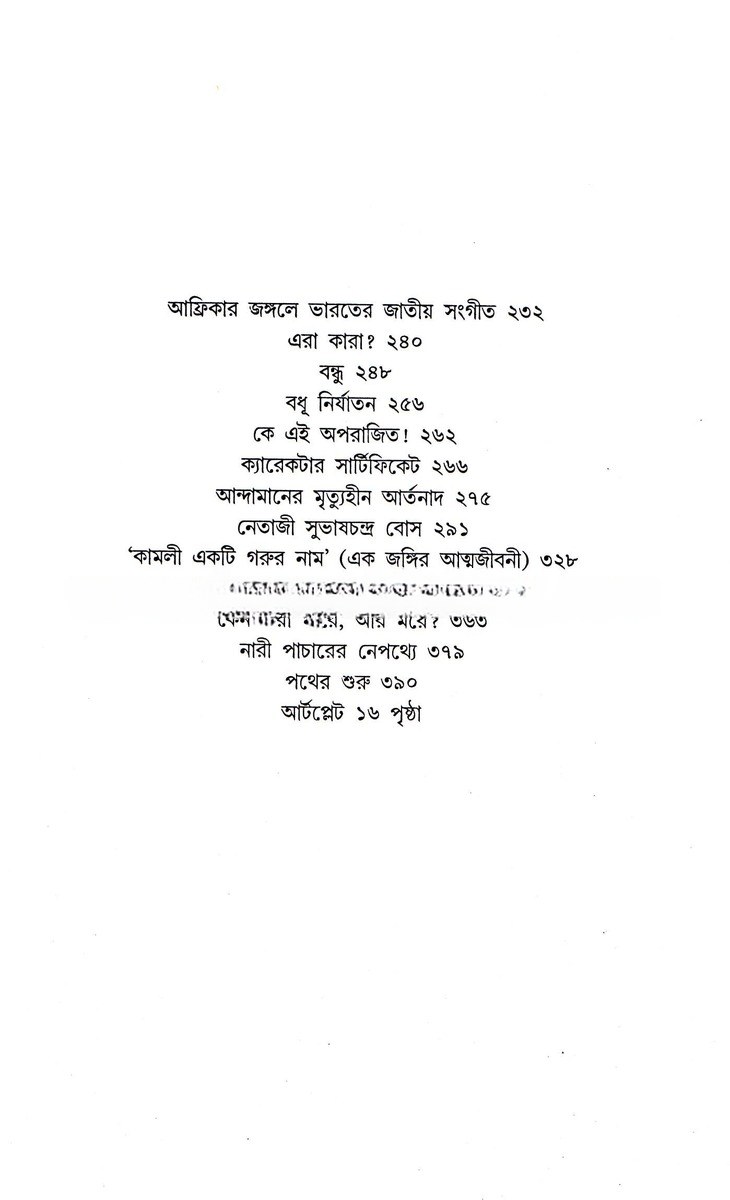 আফ্রিকার জঙ্গলে ভারতের জাতীয় সংগীত ২৩২
এরা কারা? ২৪০
বন্ধু ২৪৮
বধূ নির্যাতন ২৫৬
কে এই অপরাজিত! ২৬২
ক্যারেকটার সার্টিফিকেট ২৬৬
আন্দামানের মৃত্যুহীন আর্তনাদ ২৭৫
নেতাজী সুভাষচন্দ্র বোস ২৯১
‘কামলী একটি গরুর নাম’ (এক জঙ্গির আত্মজীবনী) ৩২৮
আর মরে? ৩৬৩
নারী পাচারের নেপথ্যে ৩৭৯
পথের শুরু ৩৯০
আর্টপ্লেট ১৬ পৃষ্ঠা